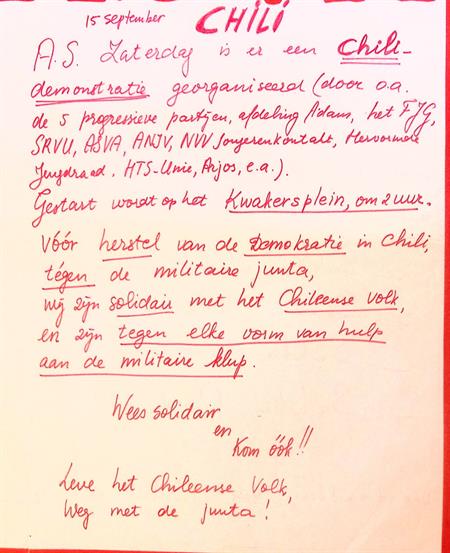 15 september CHILI
A.S. Zaterdag is er een Chili-
demonstratie georganiseerd (door o.a.
de 5 progressieve partijen, afdeling Adam, het FJG,
SRVU, ASVA, ANJV, NVV Jongerenkontakt, Hervormde
Jeugdraad, HTS-Unie, Arjos, e.a.).
Gestart wordt op het Kwakersplein, om 2 uur.
Vóór herstel van de Demokratie in Chili,
tégen de militaire junta,
wij zijn solidair met het Chileense volk,
en zijn tegen elke vorm van hulp
aan de militaire klup.
Wees solidair
en
Kom óók!!
Leve het Chileense Volk,
Weg met de junta!